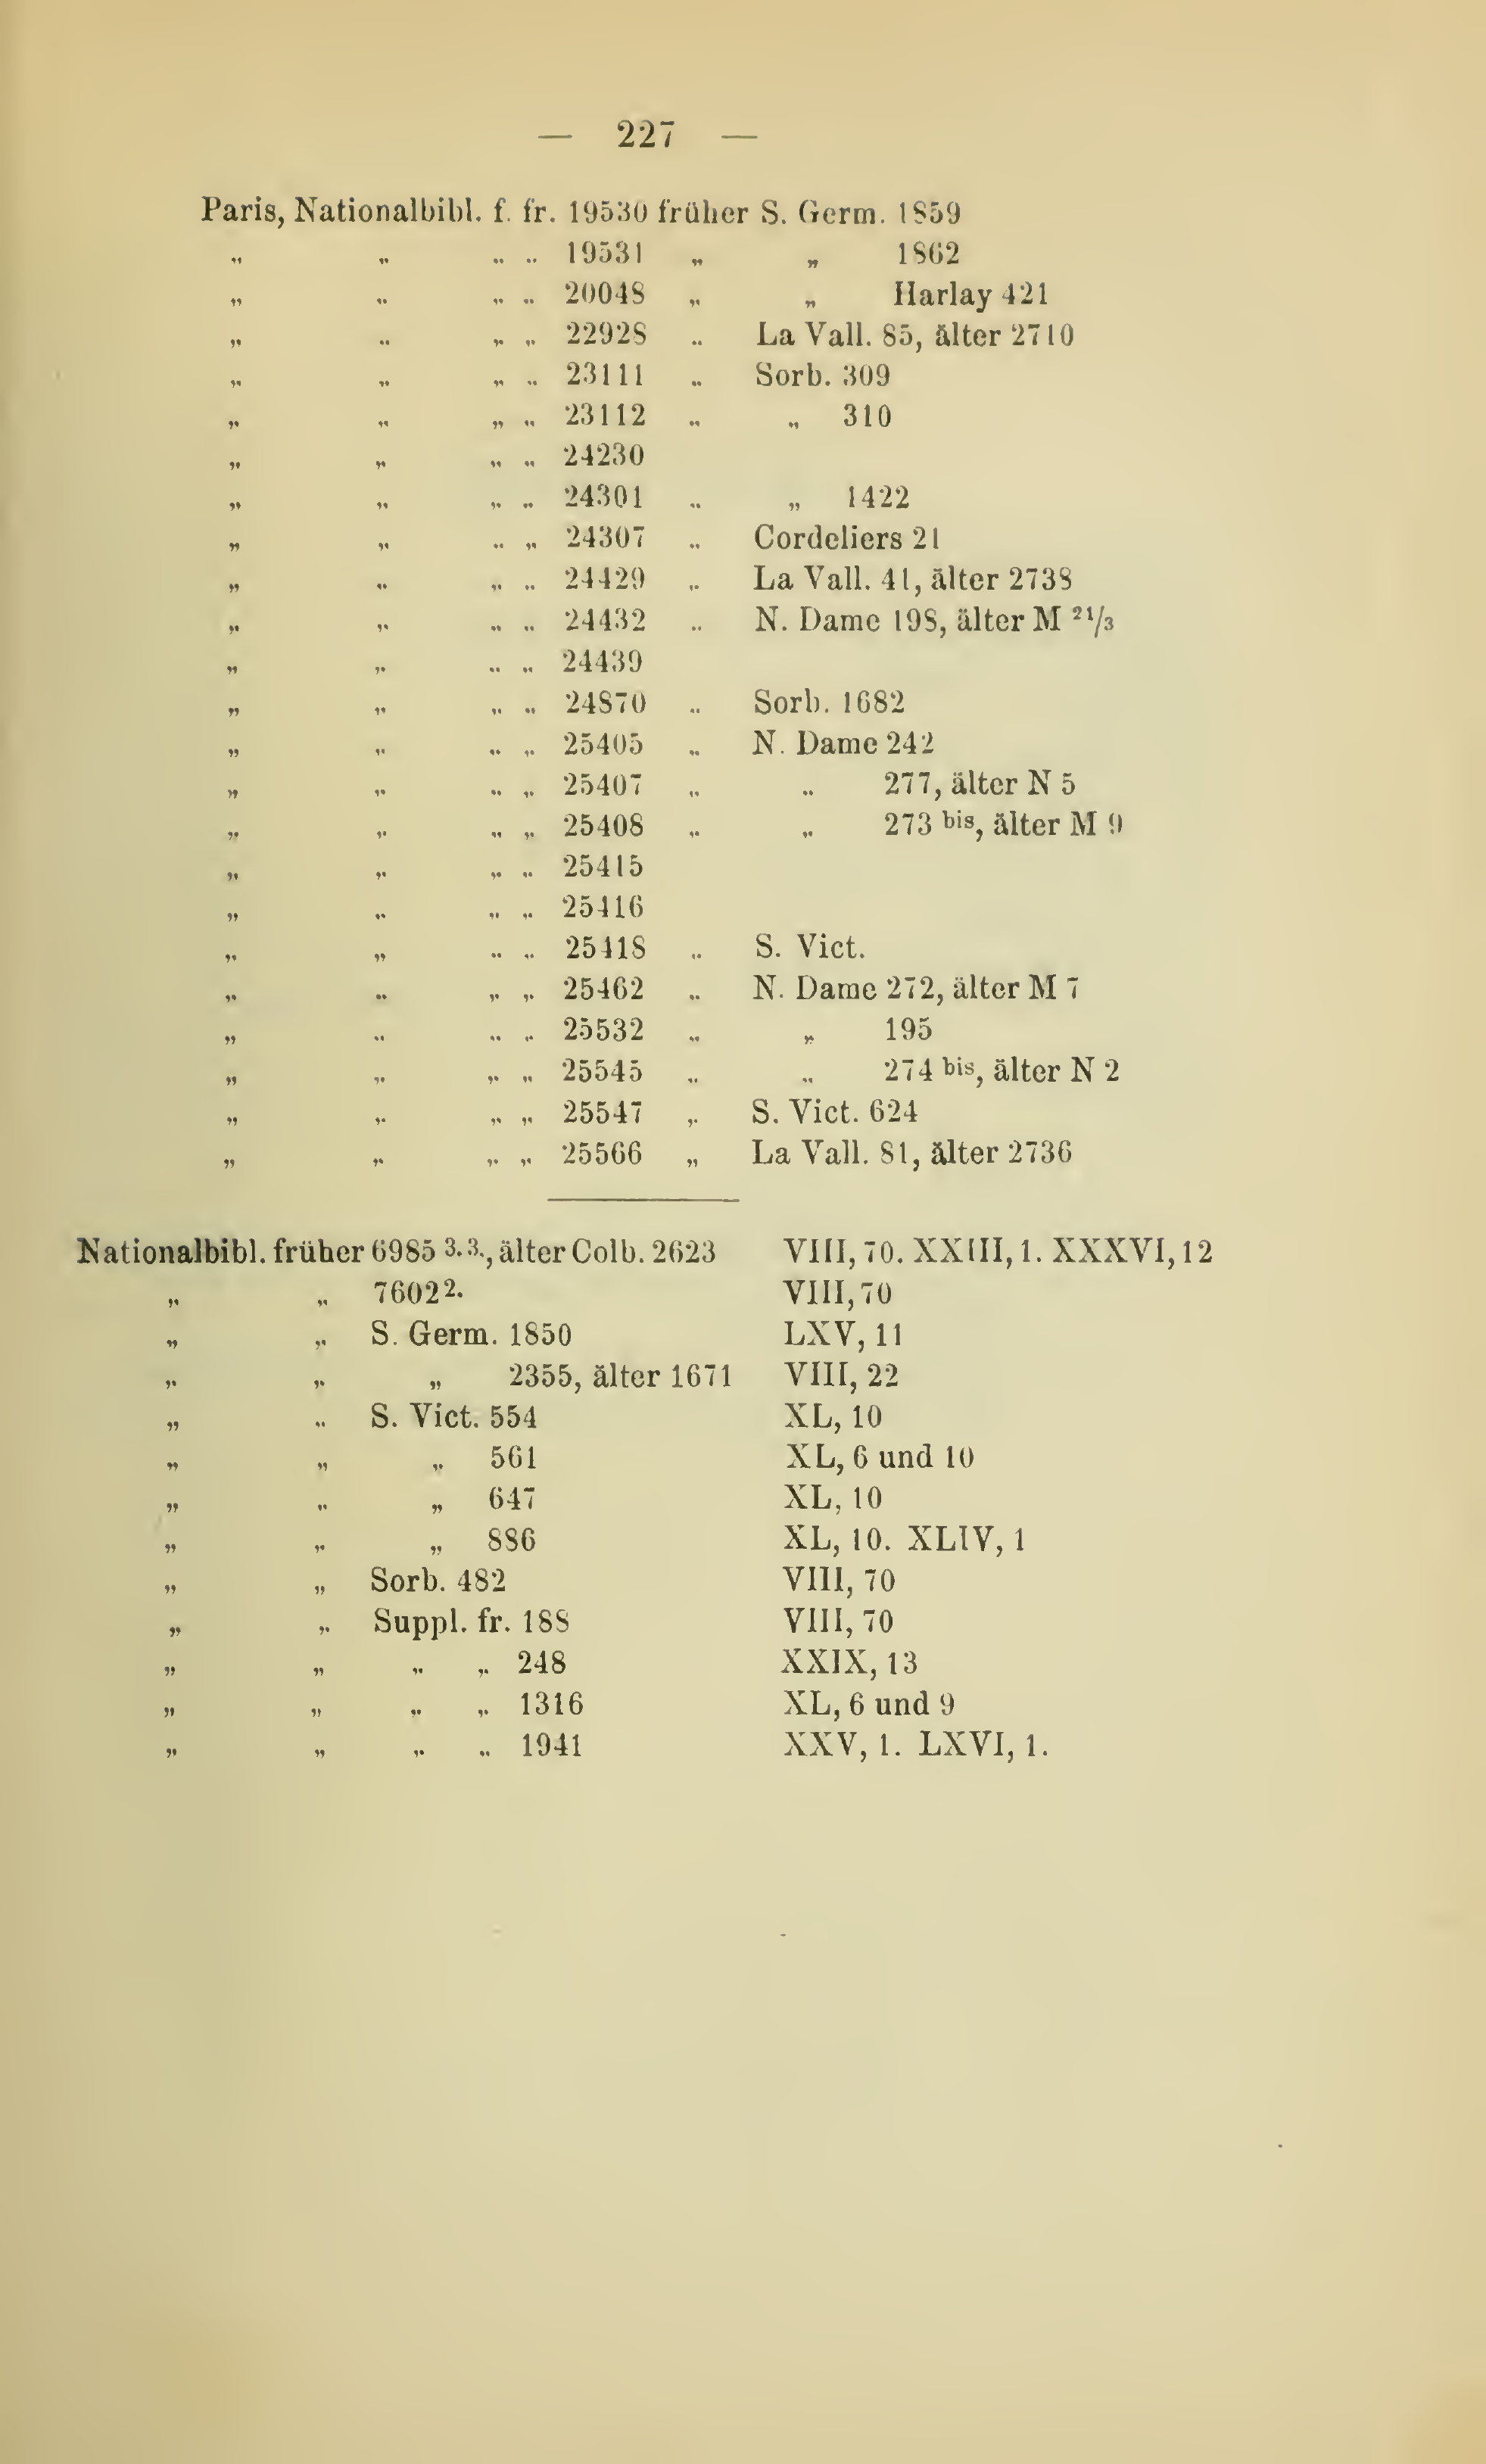 — 227 —
Paris, Nationalbibl. f. fr. 19530 früher S. Germ. 1859
„ „ „ „ 19531 „ „ 1862
„ „ „ „ 20048 „ „ Harlay 421
„ „ „ „ 22928 „ La Vall. 85, älter 2710
„ „ „ „ 23111 „ Sorb. 309
„ „ „ „ 23112 „ „ 310
„ „ „ „ 24230
„ „ „ „ 24301 „ „ 1422
„ „ „ „ 24307 „ Cordeliers 21
„ „ „ „ 24429 „ La Vall. 41, älter 2738
„ „ „ „ 24432 „ N. Dame 198, älter M ²¹/₃
„ „ „ „ 24439
„ „ „ „ 24870 „ Sorb. 1682
„ „ „ „ 25405 „ N. Dame 242
„ „ „ „ 25407 „ „ 277, älter N 5
„ „ „ „ 25408 „ „ 273 bis, älter M 9
„ „ „ „ 25415
„ „ „ „ 25416
„ „ „ „ 25418 „ S. Vict.
„ „ „ „ 25462 „ N. Dame 272, älter M 7
„ „ „ „ 25532 „ „ 195
„ „ „ „ 25545 „ „ 274 bis, älter N 2
„ „ „ „ 25547 „ S. Vict. 624
„ „ „ „ 25566 „ La Vall. 81, älter 2736
Nationalbibl. früher 6985 3.3., älter Colb. 2623 VIII, 70. XXIII, 1. XXXVI, 12
„ „ 7602 2. VIII, 70
„ „ S. Germ. 1850 LXV, 11
„ „ „ 2355, älter 1671 VIII, 22
„ „ S. Vict. 554 XL, 10
„ „ „ 561 XL, 6 und 10
„ „ „ 647 XL, 10
„ „ „ 886 XL, 10. XLIV, 1
„ „ Sorb. 482 VIII, 70
„ „ Suppl. fr. 188 VIII, 70
„ „ „ „ 248 XXIX, 13
„ „ „ „ 1316 XL, 6 und 9
„ „ „ „ 1941 XXV, 1. LXVI, 1.